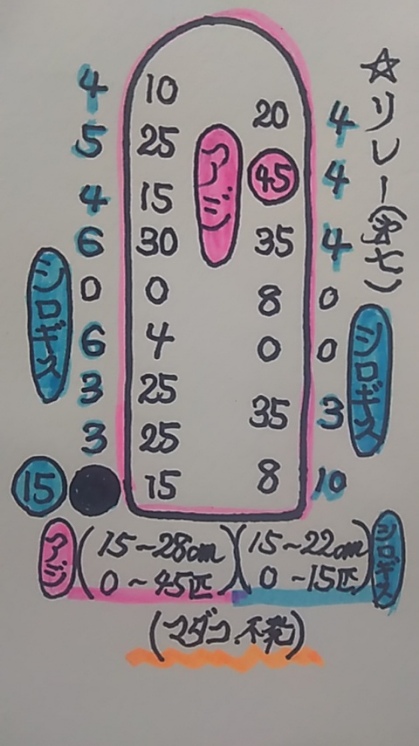 ☆リレー(第七)
4 10 20 4
5 25 アジ 45 4
4 15
6 30 35 4
シロギス 0 0 8 0 シロギス
6 4 0 0
3 25 35 3
3 25
15 15 8 10
アジ (15~28cm) (15~22cm) シロギス
0~45匹 0~15匹
(マダコ、不発)